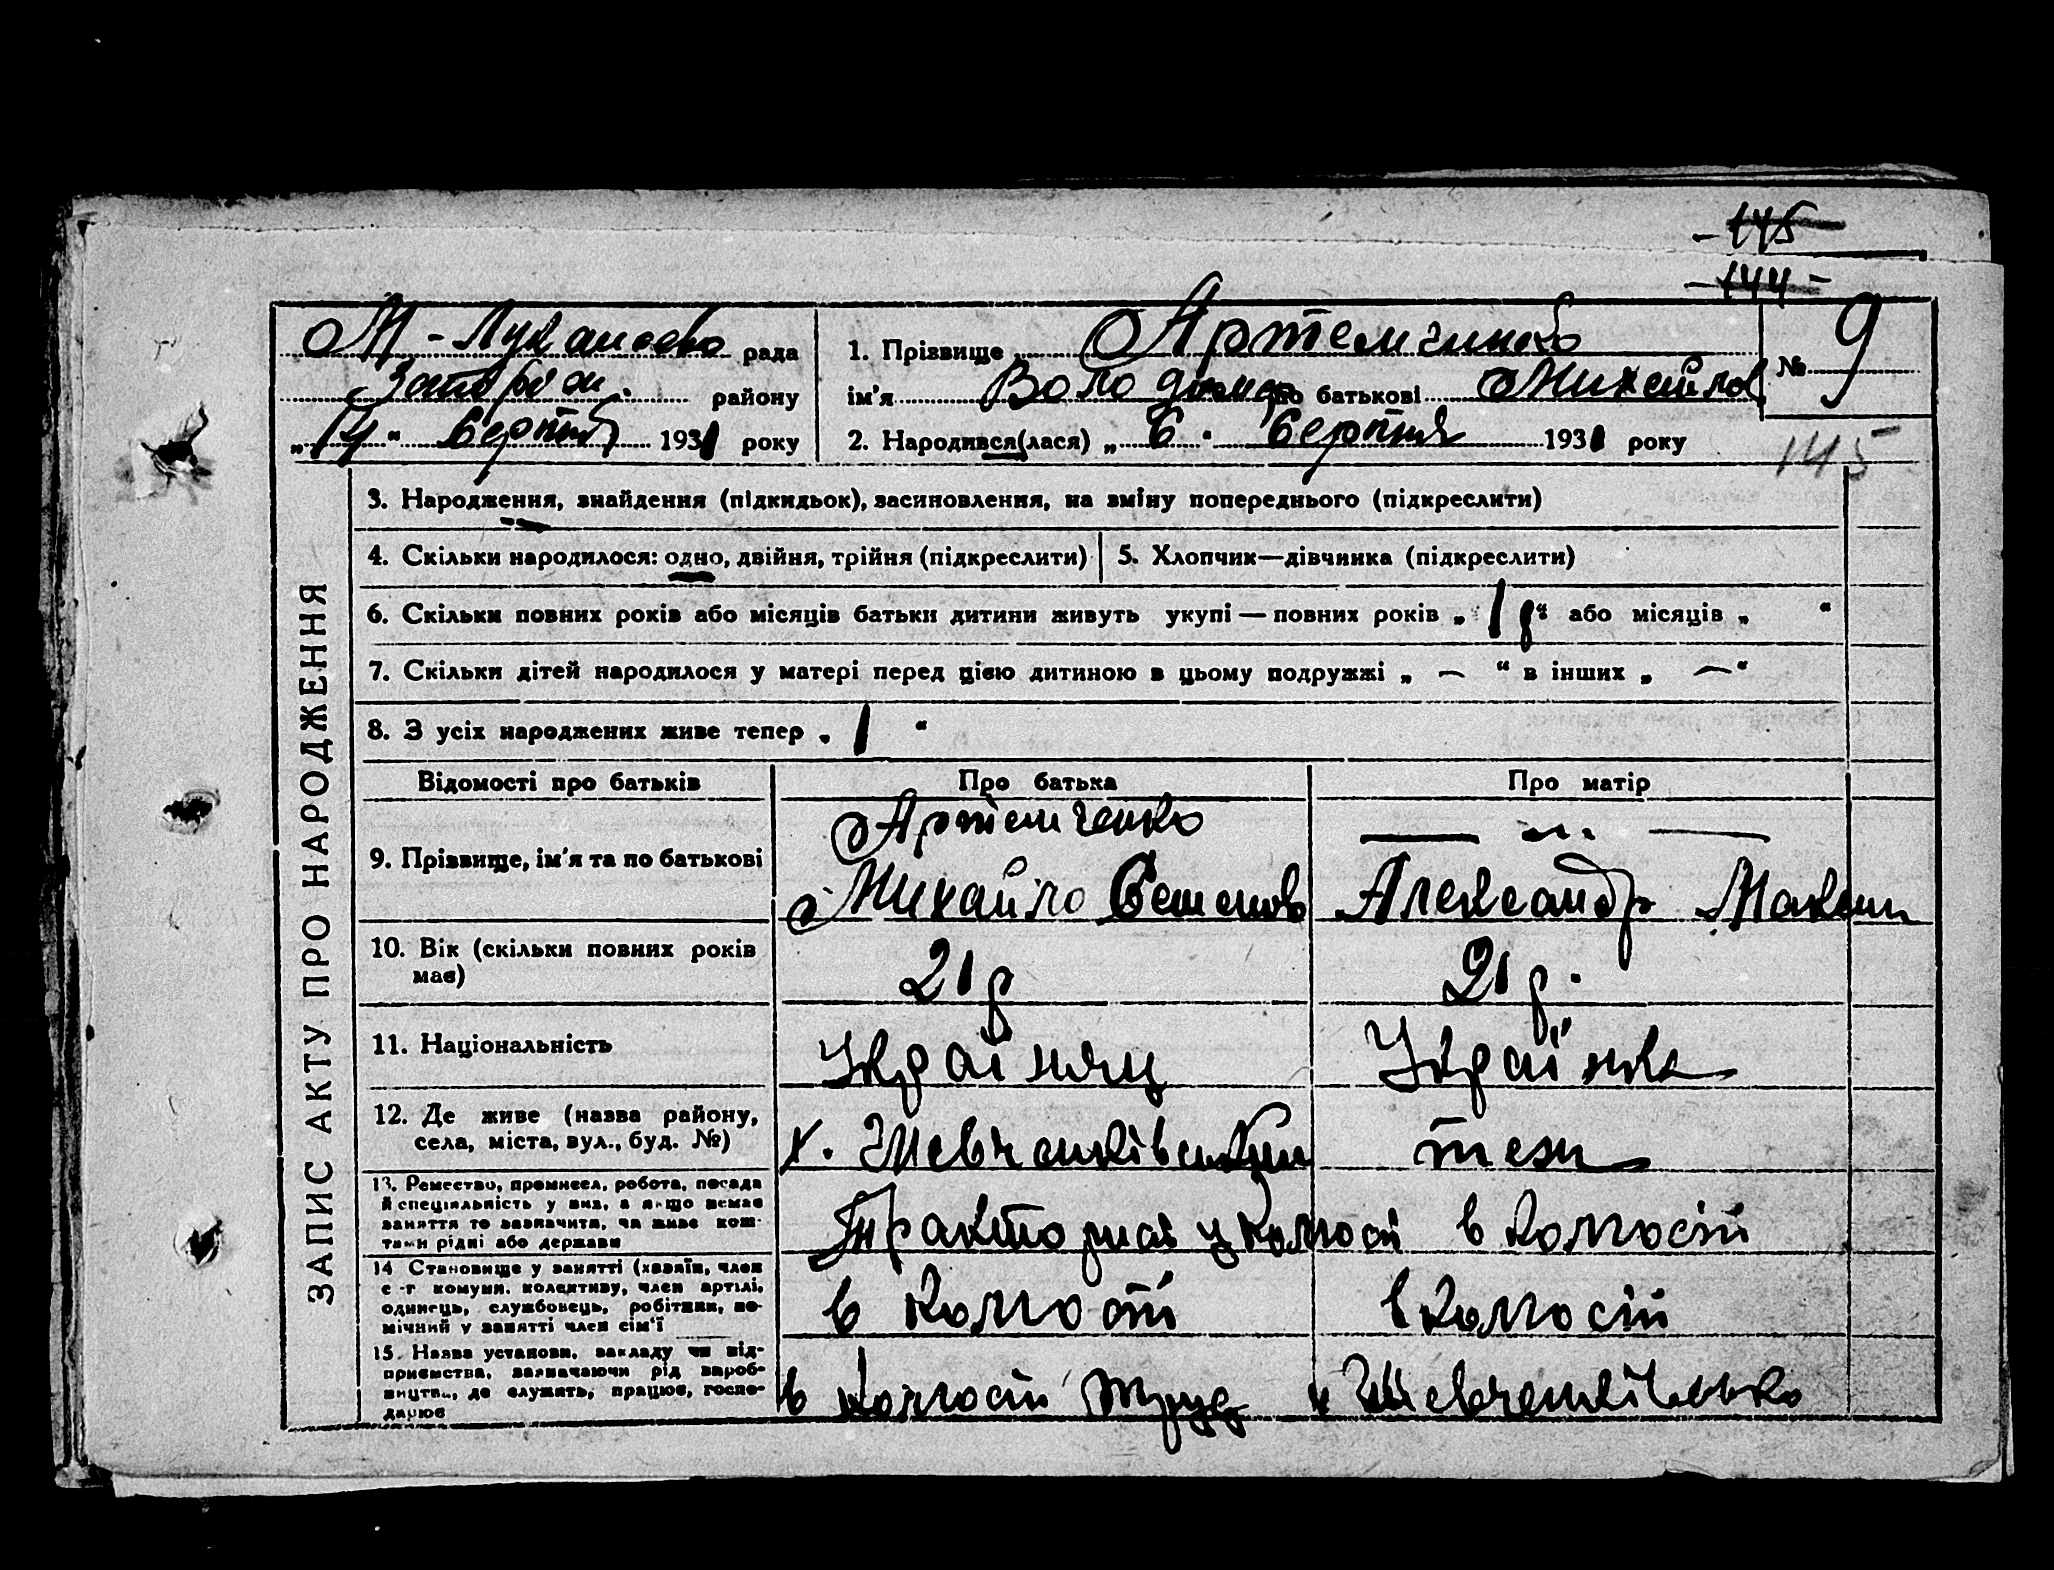 145
144
М-Лукашево рада
Запоріж. району
„ 14 “ Серпня 1931 року
1. Прізвище Артемченко
ім'я Володимир по батькові Михайлов
2. Народився(лася) „ 6 “ Серпня 1931 року
№ 9
145
ЗАПИС АКТУ ПРО НАРОДЖЕННЯ
3. Народження, знайдення (підкидьок), засиновлення, на зміну попереднього (підкреслити)
4. Скільки народилося: одно, двійня, трійня (підкреслити)
5. Хлопчик—дівчинка (підкреслити)
6. Скільки повних років або місяців батьки дитини живуть укупі — повних років „ 1 р “ або місяців „ “
7. Скільки дітей народилося у матері перед цією дитиною в цьому подружжі „ — “ в інших „ — “
8. З усіх народжених живе тепер „ 1 “
Відомості про батьків
Про батька
Про матір
9. Прізвище, ім'я та по батькові
Артемченко
Михайло Семенов
— „ —
Александр Максим
10. Вік (скільки повних років
має)
21 р
21 р.
11. Національність
Українец
Українка
12. Де живе (назва району,
села, міста, вул., буд. №)
х. Шевченківський
теж
13. Ремество, промисел, робота, посада
й спеціяльність у них, а якщо немає
заняття то зазначити, чи живе кош-
тами рідні або держави
Тракторист у колгосп
в колгоспі
14 Становище у занятті (хазяїн, член
с.-г комуни, колективу, член артілі,
одинець, службовець, робітник, по-
мічний у занятті член сім'ї
в колгоспі
в колгоспі
15. Назва установи, закладу чи під-
приємства, зазначаючи рід вироб-
ництва, де служить, працює, госпо-
дарює
в колгоспі
Шевченківсько